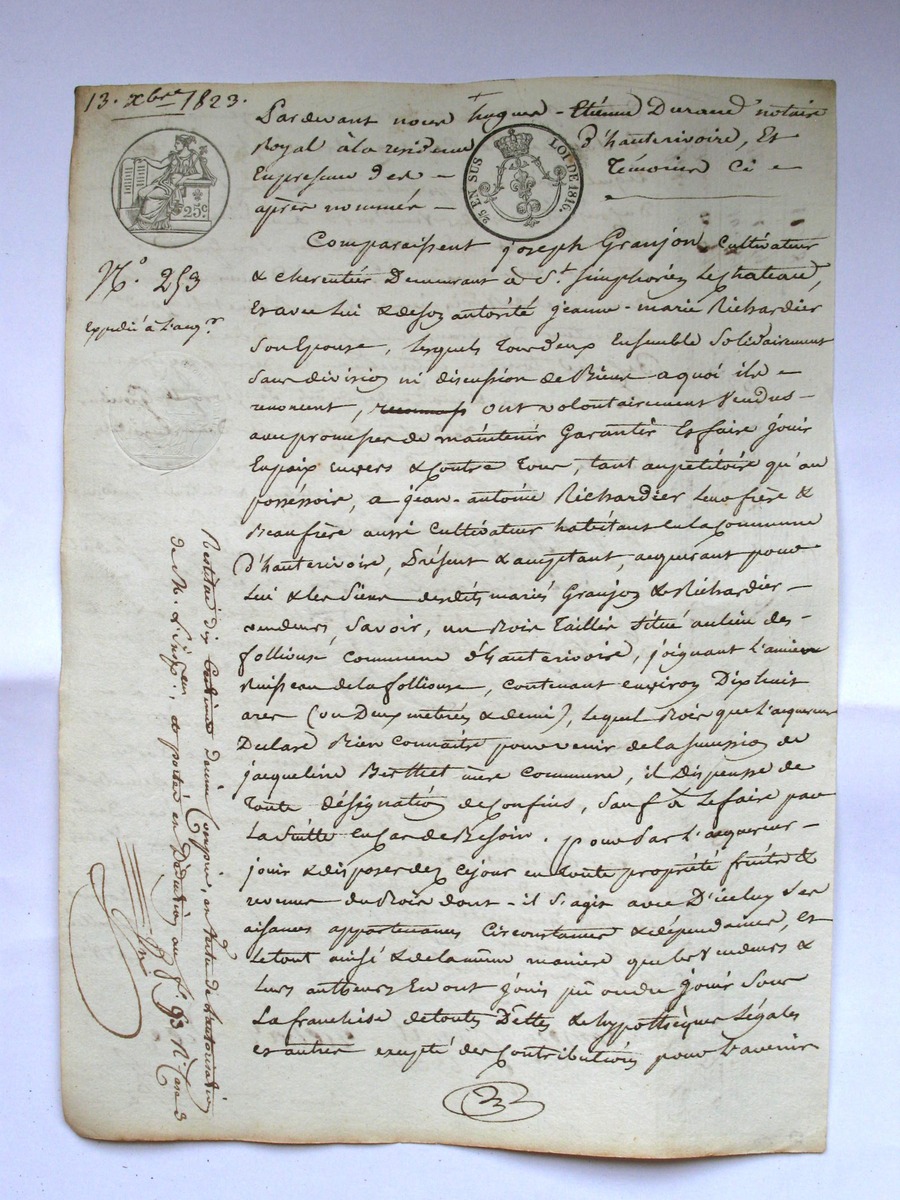 13. xbre 1823.
Pardevant nous hugues - Etienne Durand notaire
Royal à la residence d'hauterivoire, Et
En presence des - Témoins Ci =
après nommés -
25c
2/5 EN SUS
LOI DE 1816.
Comparaissent joseph Granjon, Cultivateur
N.º 253
& charpentier Demeurant à St. simphorien le chateau,
Expedié à l'acq.r
Et avec Lui & de son autorité jeanne-marie Richardier
Son Epouse, lesquels Tous deux Ensemble Solidairement
Sans division ni discussion de Biens a quoi ils =
renoncent, ont volontairement Vendus -
avec promesses de maintenir Garantir Et faire jouir
En paix envers & Contre Tous, tant au petitoire qu'au
posséssoir, a jean-antoine Richardier leur frère &
Beaufrère aussi Cultivateur habitant en la Commune
D'hauterivoire, Présent & acceptant, acquerant pour
Lui & les Siens desdits mariés Granjon & Richardier -
vendeurs, Savoir, un Bois Taillis Situé au lieu des -
folliouse Commune d'hauterivoire, joignant l'ancien
Ruisseau de la folliouse, Contenant environ Dixhuit
ares (ou Deux metrées & demi), lequel Bois que l'acquereur
Declare Bien Connaitre pour venir de la succession de
jacqueline Berthet mère Commune, il dispense de
Toute désignation de Confins, Sauf à Le faire par
La Suitte en Cas de Besoin. pour par l'acquereur -
jouir & disposer dez Cejour en toute propriété fruits &
revenus du Bois dont - il S'agit avec D'iceluy Ses
aisances appartenances Circonstances & dépendances, Et
Le tout ainsi & de la même maniere que les Vendeurs &
Leurs autheurs En ont jouis pu ou du jouir Sous
La franchise de toutes Dettes & hypothèques Légales
et autres excepté des Contributions pour L'avenir
Restitué Dix Centimes Decime Compris, en vertu de L'autorisation
de M. L'insp.eur, & porté en Déduction au f.o 93 N.o Case 3